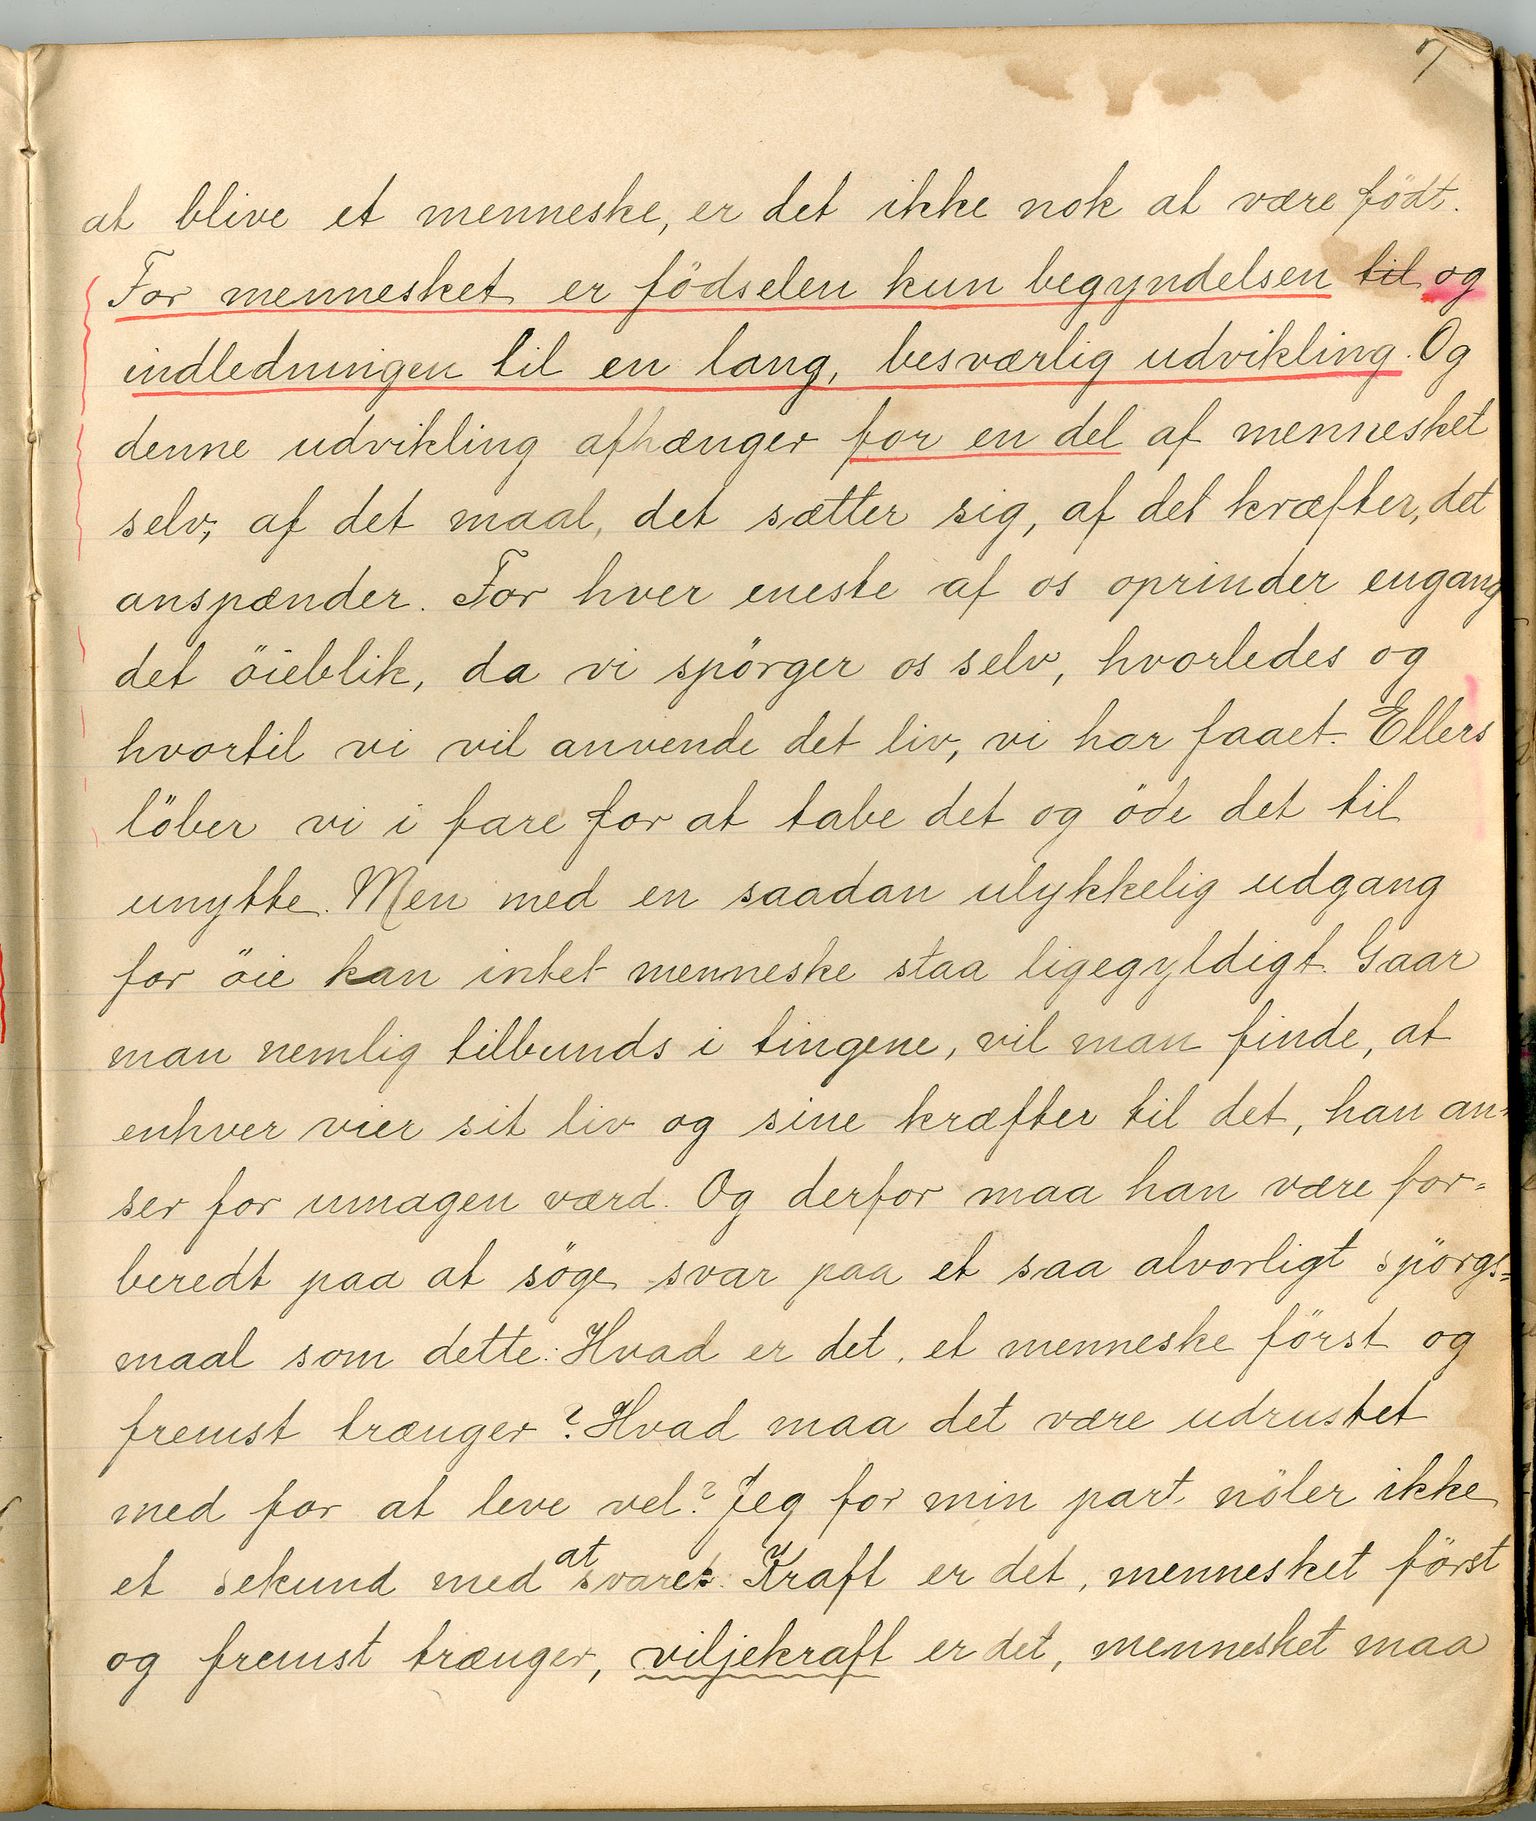 7
at blive et menneske, er det ikke nok at være födt.
For mennesket er födselen kun begyndelsen til og
indledningen til en lang, besværlig udvikling. Og
denne udvikling afhænger for en del af mennesket
selv, af det maal, det sætter sig, af det kræfter, det
anspænder. For hver eneste af os oprinder engang
det öieblik, da vi spörger os selv, hvorledes og
hvortil vi vil anvende det liv, vi har faaet. Ellers
löber vi i fare for at tabe det og öde det til
unytte. Men med en saadan ulykkelig udgang
for öie kan intet menneske staa ligegyldigt. Gaar
man nemlig tilbunds i tingene, vil man finde, at
enhver vier sit liv og sine kræfter til det, han an-
ser for umagen værd. Og derfor maa han være for=
beredt paa at söge svar paa et saa alvorligt spörgs=
maal som dette: Hvad er det, et menneske först og
fremst trænger? Hvad maa det være udrustet
med for at leve vel? Jeg for min part nöler ikke
et sekund med at svaret. Kraft er det, mennesket först
og fremst trænger, viljekraft er det, mennesket maa